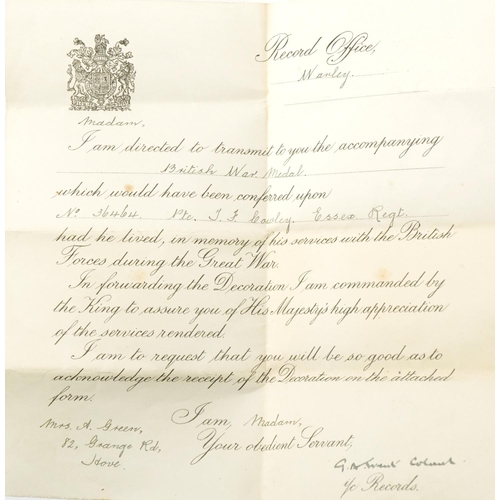 Record Office,
Warley.
Madam,
I am directed to transmit to you the accompanying
British War Medal
which would have been conferred upon
No 36464. Pte. T. F. Cowley, Essex Regt.
had he lived, in memory of his services with the British
Forces during the Great War.
In forwarding the Decoration I am commanded by
the King to assure you of His Majesty's high appreciation
of the services rendered.
I am to request that you will be so good as to
acknowledge the receipt of the Decoration on the attached
form.
I am, Madam,
Your obedient Servant,
Mrs. A. Green,
82, Grange Rd,
Hove.
Colonel
i/c Records.